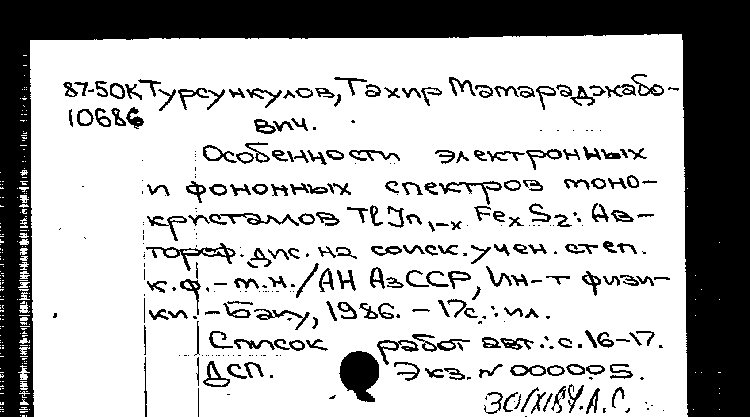 87-50К Турсункулов, Тахир Матараджабо-
10686 вич.
Особенности электронных
и фононных спектров моно-
кристаллов TlIn₁₋ₓ FeₓS₂: Ав-
тореф. дис. на соиск. учен. степ.
к.ф.-м.н. / АН АзССР, Ин-т физи-
ки. - Баку, 1986. - 17с.: ил.
Список работ авт.: с.16-17.
ДСП. Экз. N 000005.
А.С.